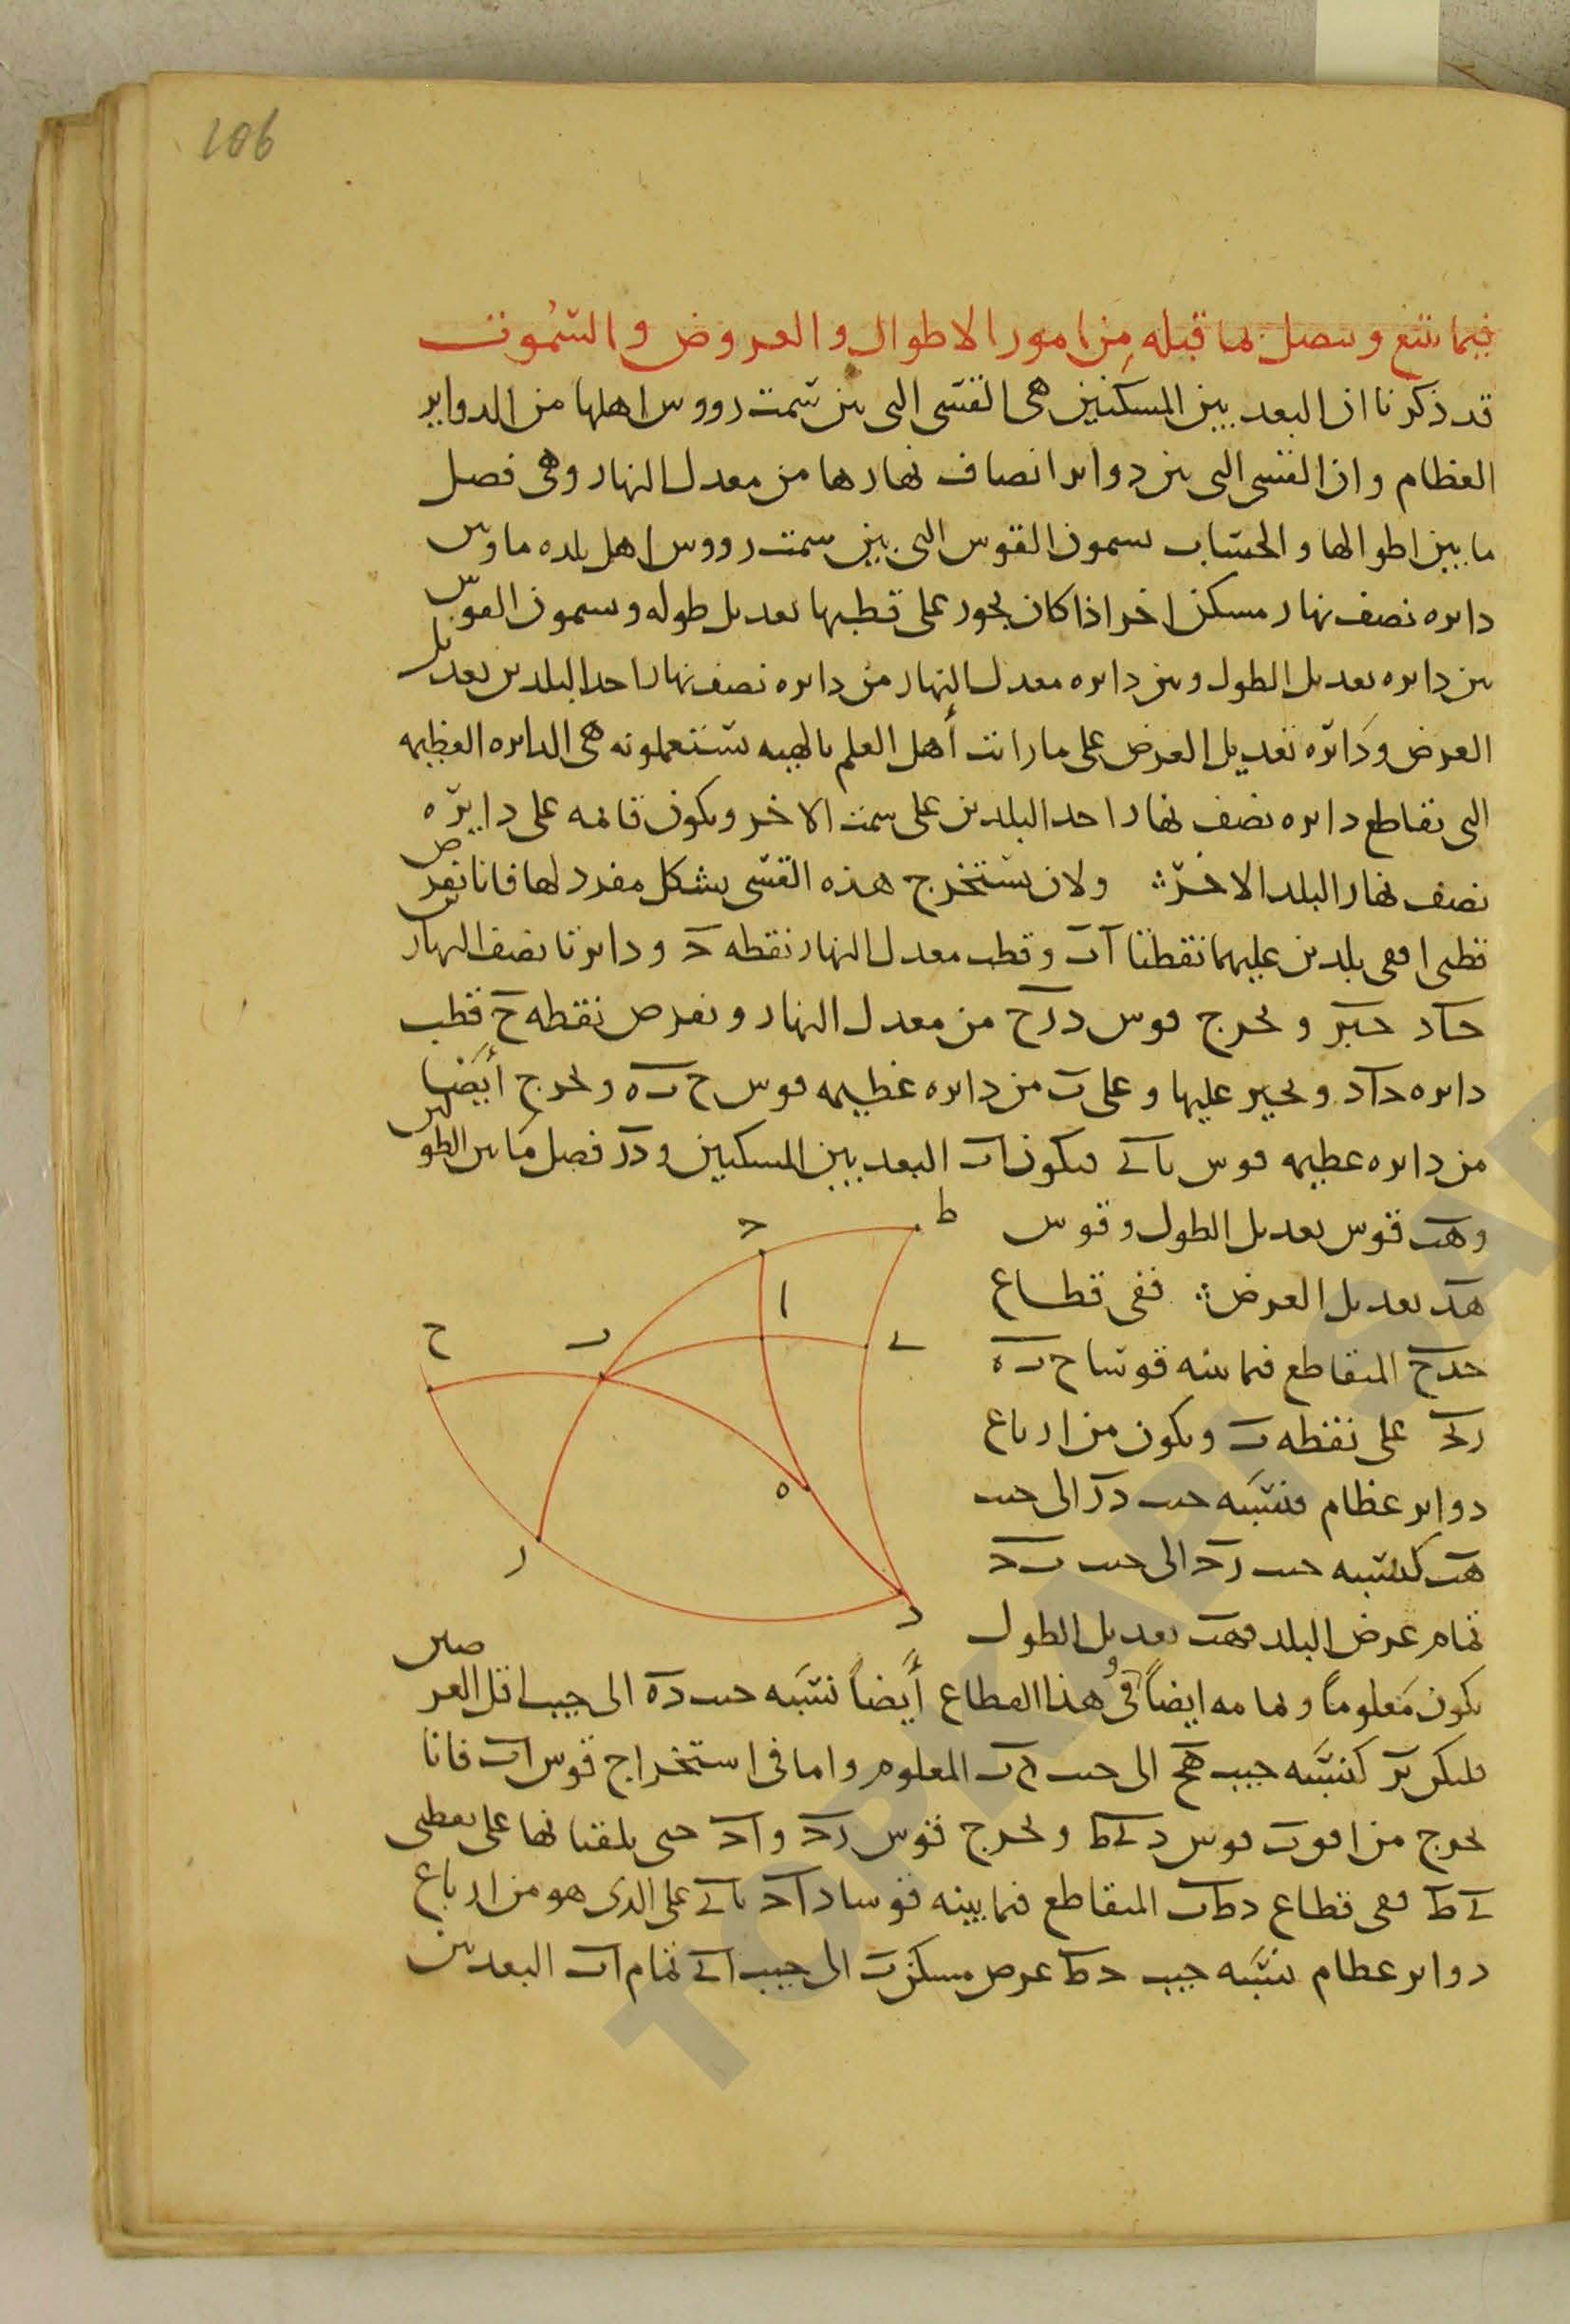 106
فيما يتبع ويتصل بما قبله من امور الاطوال والعروض والسموت
قد ذكرنا ان البعد بين المسكنين هى القسى التى بين سمت رووس اهلها من الدواير
العظام وان القسى التى بين دواير انصاف نهارها من معدل النهار وهى فصل
ما بين اطوالها والحساب يسمون القوس التى بين سمت رووس اهل بلده ما وبين
دايره نصف نهار مسكن اخر اذا كان يجوز على قطبها تعديل طوله ويسمون القوس
بين دايره تعديل الطول وبين دايره معدل النهار من دايره نصف نهار احد البلدين تعديل
العرض ودائره تعديل العرض على ما رايت أهل العلم بالهيه يستعملونه هى الدايره العظيمه
التى تقاطع دايره نصف نهار احد البلدين على سمت الاخر ويكون قائمه على دايره
نصف نهار البلد الاخر ولان يستخرج هذه القسى بشكل مفرد لها فانا نفرض
قطبى افقى بلدين عليهما نقطتا ا ب وقطب معدل النهار نقطه ح ودايرتا نصف النهار
حاد حبر ونخرج قوس درح من معدل النهار ونفرض نقطه ح قطب
دايره حاد ونجيز عليها وعلى ب من دايره عظيمه قوس ح ب ه ونخرج أيضا
من دايره عظيمه قوس باى فيكون اب البعد بين المسكنين ودر فصل ما بين الطولين
وهب قوس تعديل الطول وقوس
هد تعديل العرض ففى قطاع
حدح المتقاطع فيما بينه قوسا ح ب ه
ربح على نقطه ب ويكون من ارباع
دواير عظام فنسبه جيب در الى جيب
هب كنسبه جيب رح الى جيب ب ح
تمام عرض البلد فهب تعديل الطول
يكون معلوما وتمامه ايضاً وفى هذا القطاع أيضاً نسبه جيب ده الى جيب اقل العرضين
فليكن بر كنسبه جيب هح الى جيب ح ب المعلوم واما فى استخراج قوس اب فانا
نخرج من افق ب قوس دىط ونخرج قوس رح واح حتى يلقيانها على نقطتى
ى ط ففى قطاع دطب المتقاطع فيما بينه قوسا داح باى على الذى هو من ارباع
دواير عظام نسبه جيب حط عرض مسكن ب الى جيب اى تمام اب البعد بين
ط
ح
ا
ب
ى
ح
ه
ر
د
TOPKAPI SAR